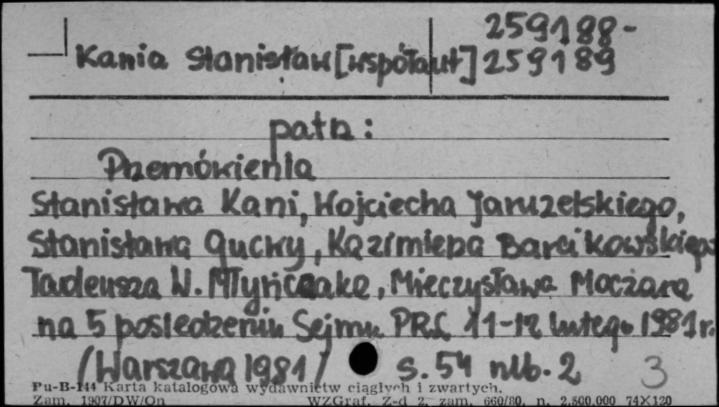 259188-
Kania Stanisław [współaut] 259189
patrz:
Przemówienia
Stanisława Kani, Wojciecha Jaruzelskiego,
Stanisława Gucwy, Kazimierza Barcikowskiego
Tadeusza W. Młyńczaka, Mieczysława Moczara
na 5 posiedzeniu Sejmu PRL 11-12 lutego 1981 r.
/Warszawa 1981/ s. 54 nlb. 2 3
Pu-B-144 Karta katalogowa wydawnictw ciągłych i zwartych.
Zam. 1907/DW/On WZGraf. Z-d 2, zam. 660/80, n. 2.500.000 74X120